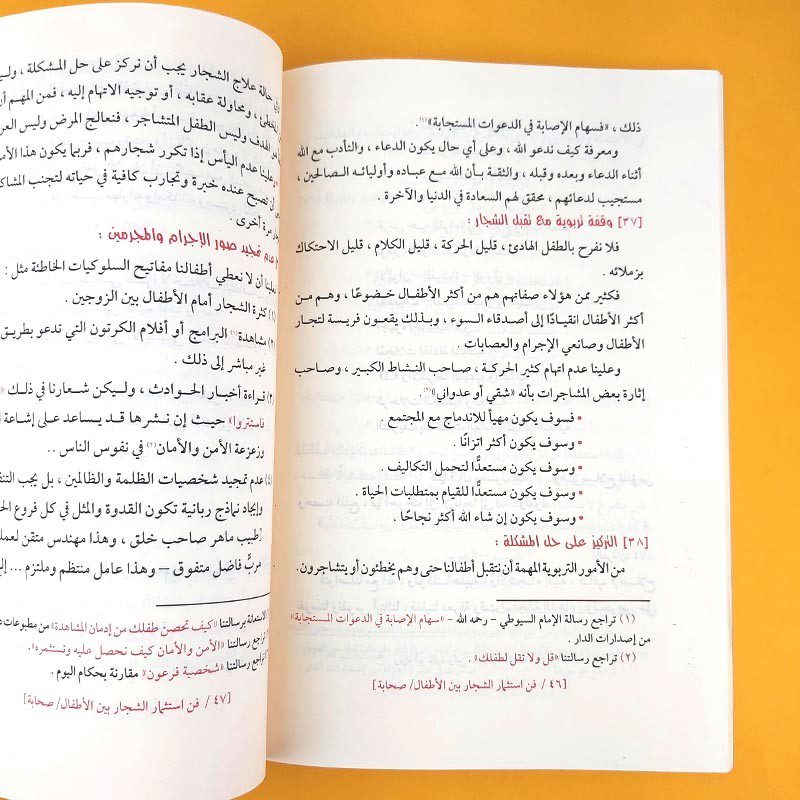 ذلك ، «فسهام الإصابة في الدعوات المستجابة»(١).
ومعرفة كيف ندعو الله ، وعلى أي حال يكون الدعاء ، والتأدب مع الله
أثناء الدعاء وبعده وقبله ، والثقة بأن الله مع عباده وأوليائه الصالحين ،
مستجيب لدعائهم ، محقق لهم السعادة في الدنيا والآخرة .
[٣٧] وقفة تربوية مع تقبل الشجار :
فلا نفرح بالطفل الهادئ ، قليل الحركة ، قليل الكلام ، قليل الاحتكاك
بزملائه .
فكثير ممن هؤلاء صفاتهم هم من أكثر الأطفال خضوعًا ، وهم من
أكثر الأطفال انقيادًا إلى أصدقاء السوء ، وبذلك يقعون فريسة لتجار
الأطفال وصانعي الإجرام والعصابات .
وعلينا عدم اتهام كثير الحركة ، صاحب النشاط الكبير ، وصاحب
إثارة بعض المشاجرات بأنه «شقي أو عدواني»(٢)
• فسوف يكون مهيأ للاندماج مع المجتمع .
• وسوف يكون أكثر اتزانًا .
• وسوف يكون مستعدًّا لتحمل التكاليف .
• وسوف يكون مستعدًّا للقيام بمتطلبات الحياة .
• وسوف يكون إن شاء الله أكثر نجاحًا .
[٣٨] التركيز على حل المشكلة :
من الأمور التربوية المهمة أن نتقبل أطفالنا حتى وهم يخطئون أو يتشاجرون.
(١) تراجع رسالة الإمام السيوطي – رحمه الله – «سهام الإصابة في الدعوات المستجابة»
من إصدارات الدار .
(٢) تراجع رسالتنا «قل ولا تقل لطفلك».
[٤٦ / فن استثمار الشجار بين الأطفال/ صحابة]
حالة علاج الشجار يجب أن نركز على حل المشكلة ، ولي
ومحاولة عقابه ، أو توجيه الاتهام إليه ، فمن المهم أن
الهدف وليس الطفل المتشاجر ، فنعالج المرض وليس العر
وعلينا عدم اليأس إذا تكرر شجارهم ، فربما يكون هذا الأمر
تصبح عنده خبرة وتجارب كافية في حياته لتجنب المشاكل
مرة أخرى .
عدم تمجيد صور الإجرام والمجرمين :
علينا أن لا نعطي أطفالنا مفاتيح السلوكيات الخاطئة مثل :
(١) كثرة الشجار أمام الأطفال بين الزوجين .
(٢) مشاهدة(١) البرامج أو أفلام الكرتون التي تدعو بطريق
غير مباشر إلى ذلك .
(٣) قراءة أخبار الحوادث ، وليكن شعارنا في ذلك «
فاستتروا» حيث إن نشرها قد يساعد على إشاعة
وزعزعة الأمن والأمان(٢) في نفوس الناس ..
(٤) عدم تمجيد شخصيات الظلمة والظالمين ، بل يجب التن
وإيجاد نماذج ربانية تكون القدوة والمثل في كل فروع الح
[طبيب ماهر صاحب خلق ، وهذا مهندس متقن لعمل
مربٍّ فاضل متفوق – وهذا عامل منتظم وملتزم ... إل
الاستعانة برسالتنا «كيف تحصن طفلك من إدمان المشاهدة» من مطبوعات
تراجع رسالتنا «الأمن والأمان كيف نحصل عليه ونستثمره».
تراجع رسالتنا «شخصية فرعون» مقارنة بحكام اليوم .
[٤٧ / فن استثمار الشجار بين الأطفال/ صحابة]